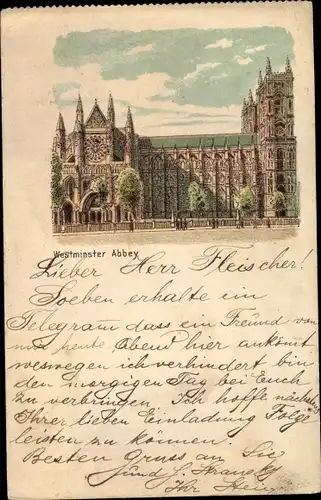 Westminster Abbey
Lieber Herr Fleischer!
Soeben erhalte ein
Telegram dass ein Freund von
mir heute Abend hier ankomt
weswegen ich verhindert bin
den morgigen Tag bei Euch
zu verbringen. Ich hoffe nächstens
Ihrer lieben Einladung Folge
leisten zu können.
Besten Gruss an Sie
Ihr